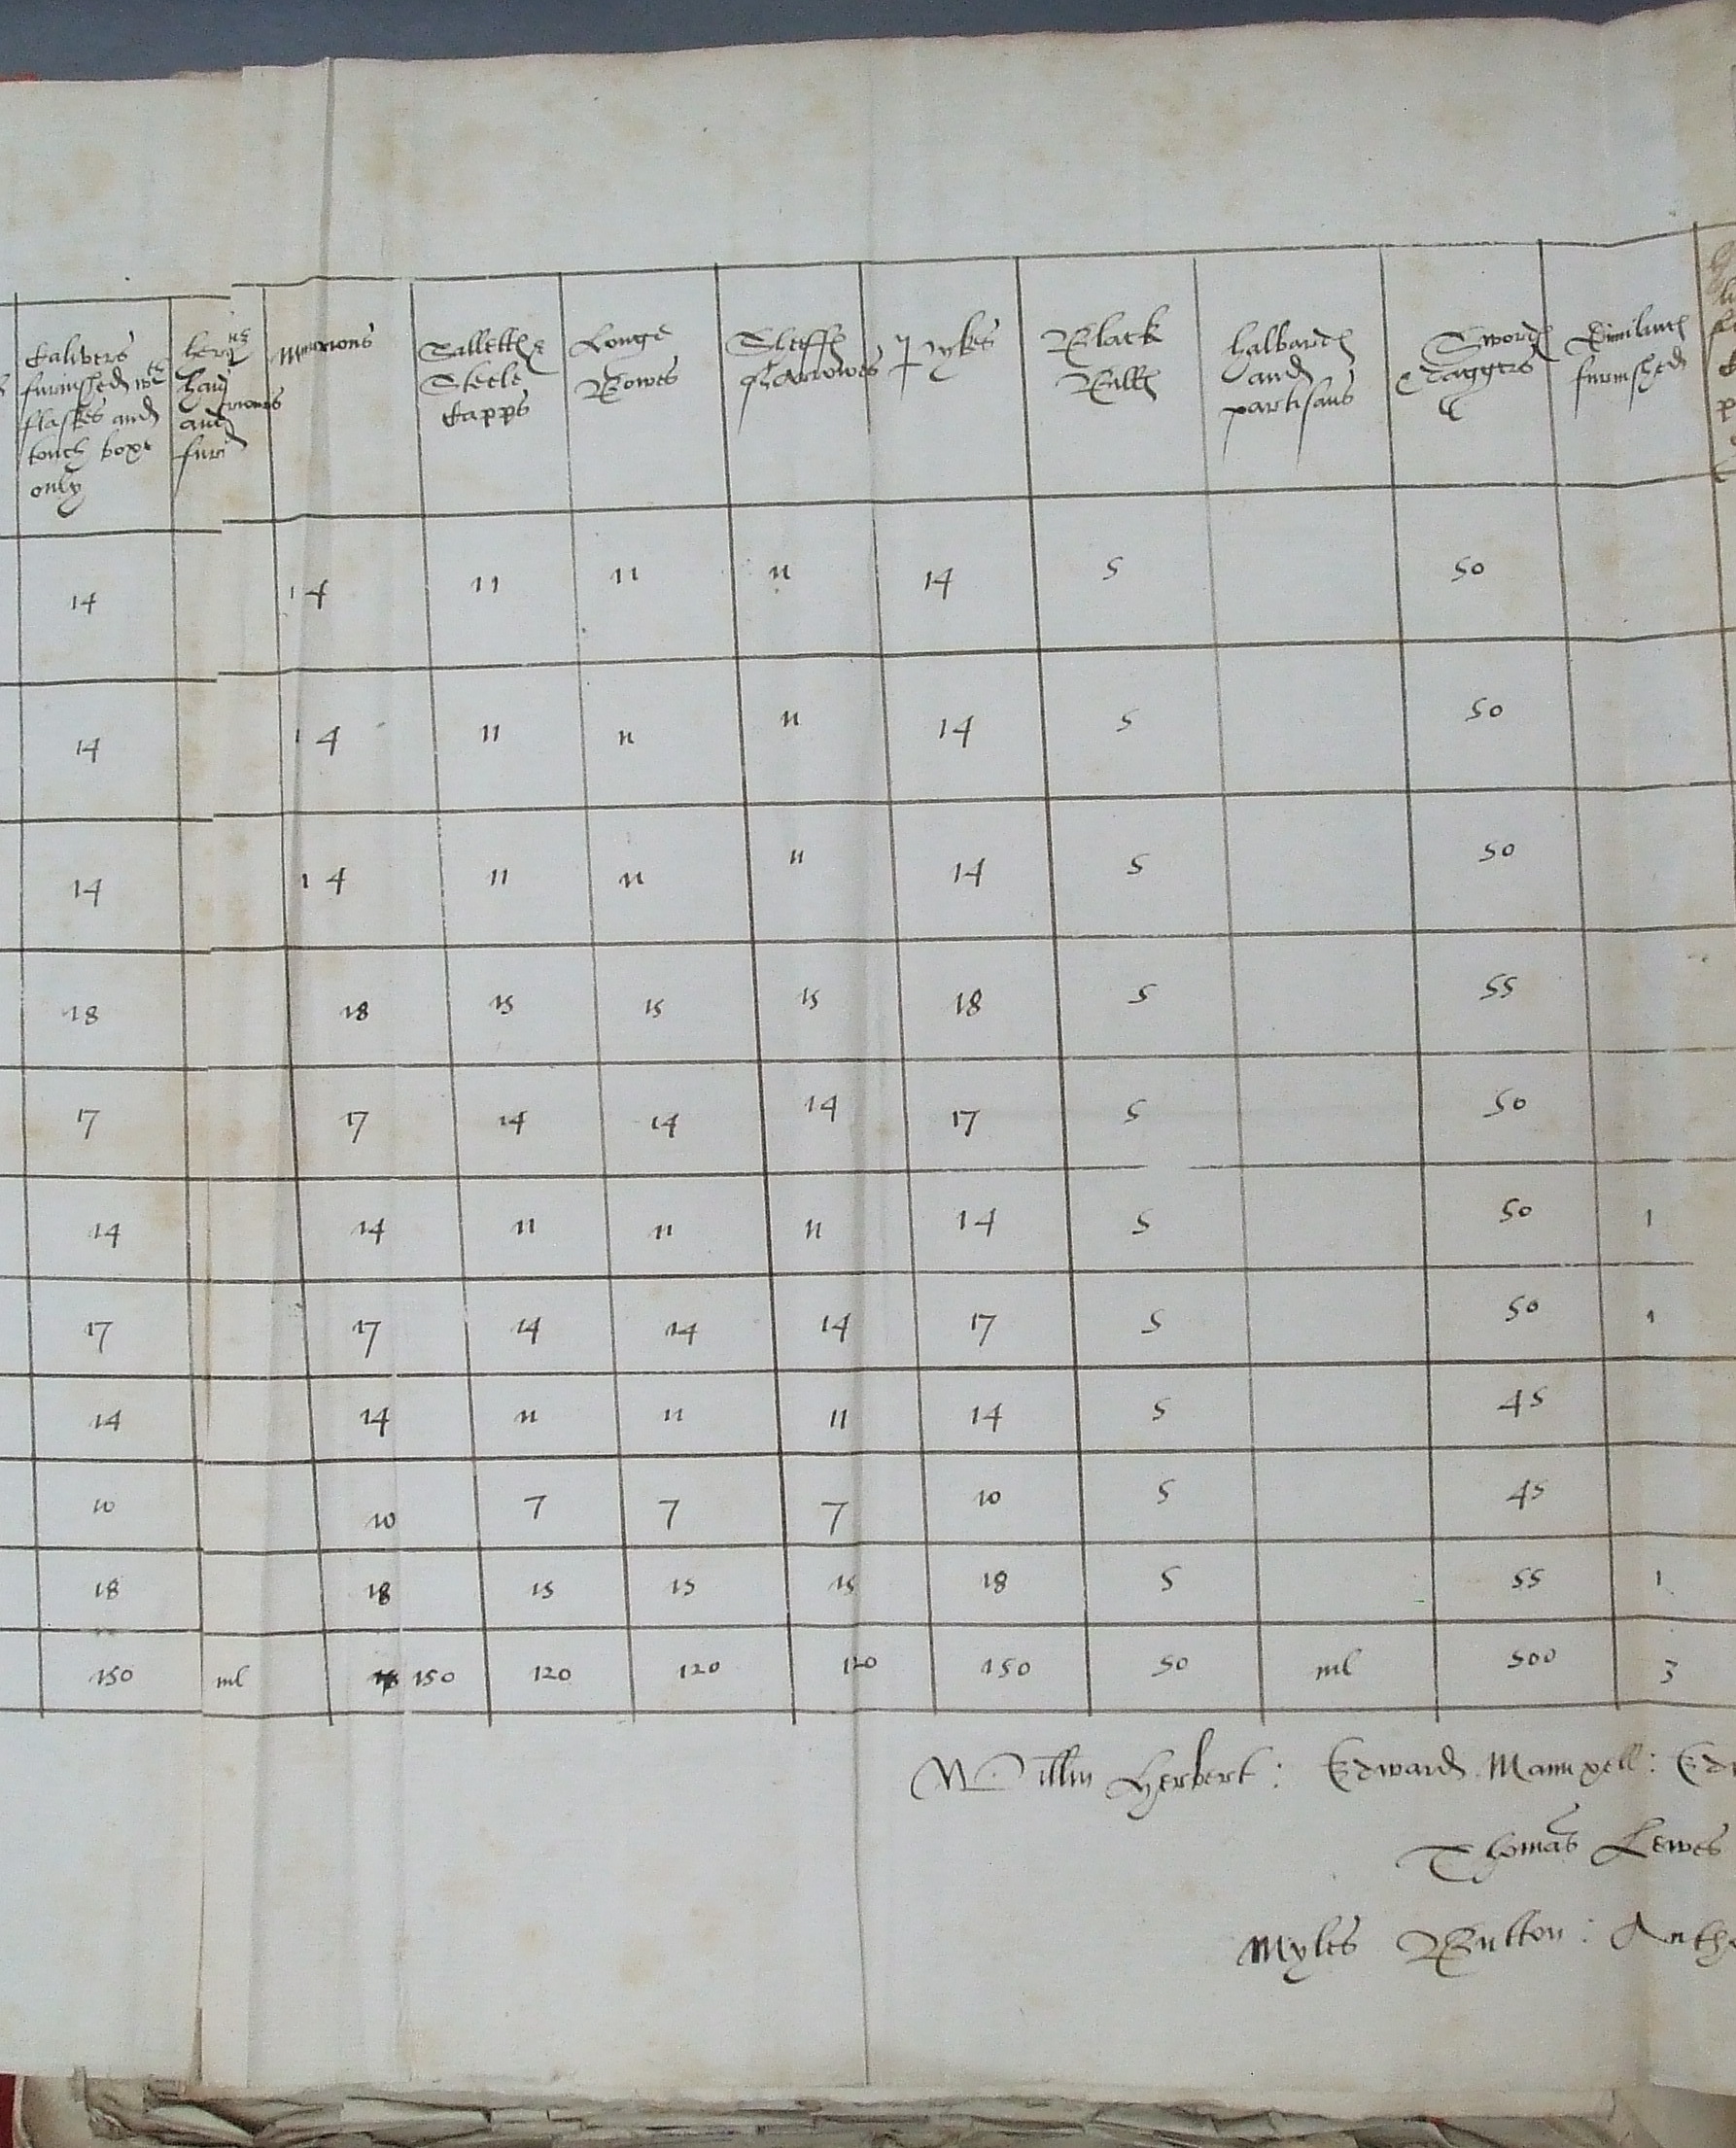 Calivers furnished wth flaskes and touch boxe only | Morrions | Salletts & Steele Capps | Longe Bowes | Sheffs of Arrowes | Pykes | Black Bills | halbards and partisans | Swords & Daggers | Dimilances furnished
14 | 14 | 11 | 11 | 11 | 14 | 5 | 50
14 | 14 | 11 | 11 | 11 | 14 | 5 | 50
14 | 14 | 11 | 11 | 11 | 14 | 5 | 50
18 | 18 | 15 | 15 | 15 | 18 | 5 | 55
17 | 17 | 14 | 14 | 14 | 17 | 5 | 50
14 | 14 | 11 | 11 | 11 | 14 | 5 | 50 | 1
17 | 17 | 14 | 14 | 14 | 17 | 5 | 50 | 1
14 | 14 | 11 | 11 | 11 | 14 | 5 | 45
10 | 10 | 7 | 7 | 7 | 10 | 5 | 45
18 | 18 | 15 | 15 | 15 | 18 | 5 | 55 | 1
150 | nil | 150 | 120 | 120 | 120 | 150 | 50 | nil | 500 | 3
Willm Herbert : Edward Manxell : Edw
Thomas Lewes
Myles Button : Antho